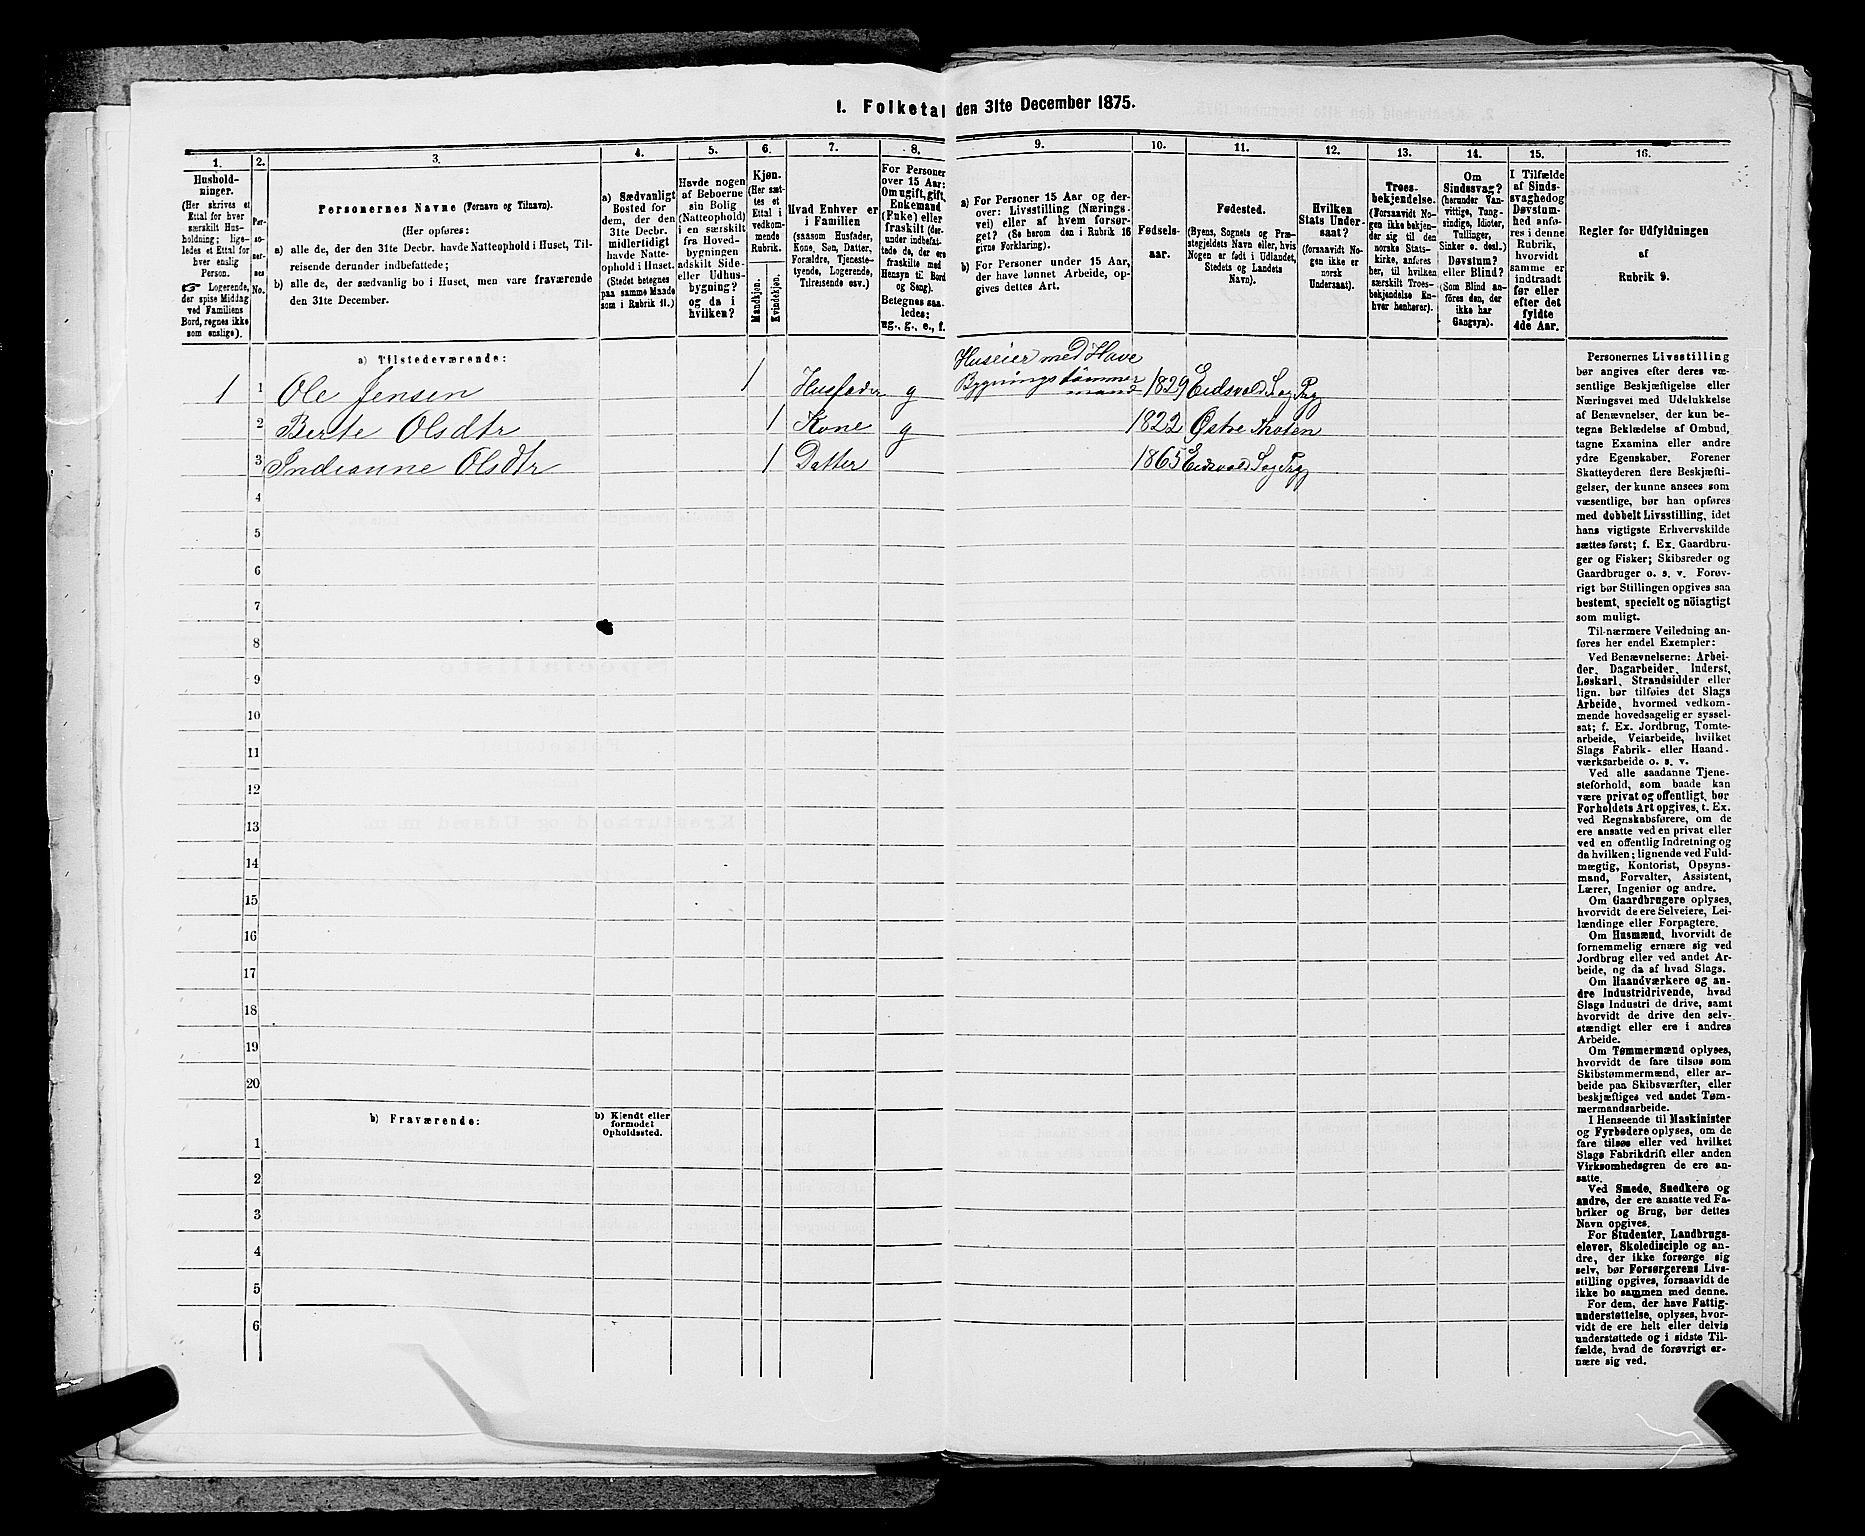 1. Folketal den 31te December 1875.
1. 2. 3. 4. 5. 6. 7. 8. 9. 10. 11. 12. 13. 14. 15. 16.
Hushold-
ninger.
(Her skrives et
Ettal for hver
særskilt Hus-
holdning; lige-
ledes et Ettal for
hver enslig
Person.
☞ Logerende,
der spise Middag
ved Familiens
Bord, regnes ikke
som enslige).
Per-
so-
ner-
nes
No.
Personernes Navne (Fornavn og Tilnavn).
(Her opføres:
a) alle de, der den 31te Decbr. havde Natteophold i Huset, Til-
reisende derunder indbefattede;
b) alle de, der sædvanlig bo i Huset, men vare fraværende
den 31te December.
a) Sædvanligt
Bosted for
dem, der den
31te Decbr.
midlertidigt
havde Natte-
ophold i Huset.
(Stedet betegnes
paa samme Maade
som i Rubrik 11.)
Havde nogen
af Beboerne
sin Bolig
(Natteophold)
i en særskilt
fra Hoved-
bygningen
adskilt Side-
eller Udhus-
bygning?
og da i
hvilken?
Kjøn.
(Her sæt-
tes et
Ettal i
vedkom-
mende
Rubrik.
Mandkjøn.
Kvindekjøn.
Hvad Enhver er
i Familien
(saasom Husfader,
Kone, Søn, Datter,
Forældre, Tjeneste-
tyende, Logerende,
Tilreisende osv.)
For Personer
over 15 Aar:
Om ugift, gift,
Enkemand
(Enke) eller
fraskilt (der-
under indbefat-
tede de, der ere
fraskilte med
Hensyn til Bord
og Seng).
Betegnes saa-
ledes:
ug., g., e., f.
a) For Personer 15 Aar og der-
over: Livsstilling (Nærings-
vei) eller af hvem forsør-
get? (Se herom den i Rubrik 16
givne Forklaring).
b) For Personer under 15 Aar,
der have lønnet Arbeide, op-
gives dettes Art.
Fødsels-
aar.
Fødested.
(Byens, Sognets og Præ-
stegjeldets Navn eller, hvis
Nogen er født i Udlandet,
Stedets og Landets
Navn).
Hvilken
Stats Under-
saat?
(forsaavidt No-
gen ikke er
norsk
Undersaat).
Troes-
bekjendelse.
(Forsaavidt No-
gen ikke bekjen-
der sig til den
norske Stats-
kirke, anføres
her, til hvilken
særskilt Troes-
bekjendelse En-
hver henhører).
Om
Sindssvag?
(herunder Van-
vittige, Tung-
sindige, Idioter,
Tullinger,
Sinker o. desl.)
Døvstum?
eller Blind?
(Som Blind an-
føres den, der
ikke har
Gangsyn).
I Tilfælde
af Sinds-
svaghed og
Døvstum-
hed anfø-
res i denne
Rubrik,
hvorvidt
samme er
indtraadt
før eller
efter det
fyldte
4de Aar.
Regler for Udfyldningen
af
Rubrik 9.
a) Tilstedeværende:
Huseier med Have
1 1 Ole Jensen 1 Husfader g Bygningstømmermand 1829 Eidsvold S og Prg
2 Berte Olsdtr 1 Kone g 1822 Østre Thoten
3 Indianne Olsdtr 1 Datter 1865 Eidsvold S og Prg
4
5
6
7
8
9
10
11
12
13
14
15
16
17
18
19
20
b) Fraværende:
b) Kjendt eller
formodet
Opholdssted.
1
2
3
4
5
6
Personernes Livsstilling
bør angives efter deres væ-
sentlige Beskjæftigelse eller
Næringsvei med Udelukkelse
af Benævnelser, der kun be-
tegne Beklædelse af Ombud,
tagne Examina eller andre
ydre Egenskaber. Forener
Skatteyderen flere Beskjæfti-
gelser, der kunne ansees som
væsentlige, bør han opføres
med dobbelt Livsstilling, idet
hans vigtigste Erhvervskilde
sættes først; f. Ex. Gaardbru-
ger og Fisker; Skibsreder og
Gaardbruger o. s. v. Forøv-
rigt bør Stillingen opgives saa
bestemt, specielt og nöiagtigt
som muligt.
Til nærmere Veiledning an-
føres her endel Exempler:
Ved Benævnelserne: Arbei-
der, Dagarbeider, Inderst,
Løskarl, Strandsidder eller
lign. bør tilføies det Slags
Arbeide, hvormed vedkom-
mende hovedsagelig er syssel-
sat; f. Ex. Jordbrug, Tomte-
arbeide, Veiarbeide, hvilket
Slags Fabrik- eller Haand-
værksarbeide o. s. v.
Ved alle saadanne Tjene-
steforhold, som baade kan
være privat og offentligt, bør
Forholdets Art opgives, t. Ex.
ved Regnskabsførere, om de
ere ansatte ved en privat eller
ved en offentlig Indretning og
da hvilken; lignende ved Fuld-
mægtig, Kontorist, Opsyns-
mand, Forvalter, Assistent,
Lærer, Ingeniør og andre.
Om Gaardbrugere oplyses,
hvorvidt de ere Selveiere, Lei-
lændinge eller Forpagtere.
Om Husmænd, hvorvidt de
fornemmelig ernære sig ved
Jordbrug eller ved andet Ar-
beide, og da af hvad Slags.
Om Haandværkere og an-
dre Industridrivende, hvad
Slags Industri de drive, samt
hvorvidt de drive den selv-
stændigt eller ere i andres
Arbeide.
Om Tømmermænd oplyses,
hvorvidt de fare tilsøs som
Skibstømmermænd, eller ar-
beide paa Skibsværfter, eller
beskjæftiges ved andet Tøm-
mermandsarbeide.
I Henseende til Maskinister
og Fyrbødere oplyses, om de
fare tilsøs eller ved hvilket
Slags Fabrikdrift eller anden
Virksomhedsgren de ere an-
satte.
Ved Smede, Snedkere og
andre, der ere ansatte ved Fa-
briker og Brug, bør dettes
Navn opgives.
For Studenter, Landbrugs-
elever, Skoledisciple og an-
dre, der ikke forsørge sig
selv, bør Forsørgerens Livs-
stilling opgives, forsaavidt de
ikke bo sammen med denne.
For dem, der have Fattig-
understøttelse, oplyses, hvor-
vidt de ere helt eller delvis
understøttede og i sidste Til-
fælde, hvad de forøvrigt er-
nære sig ved.